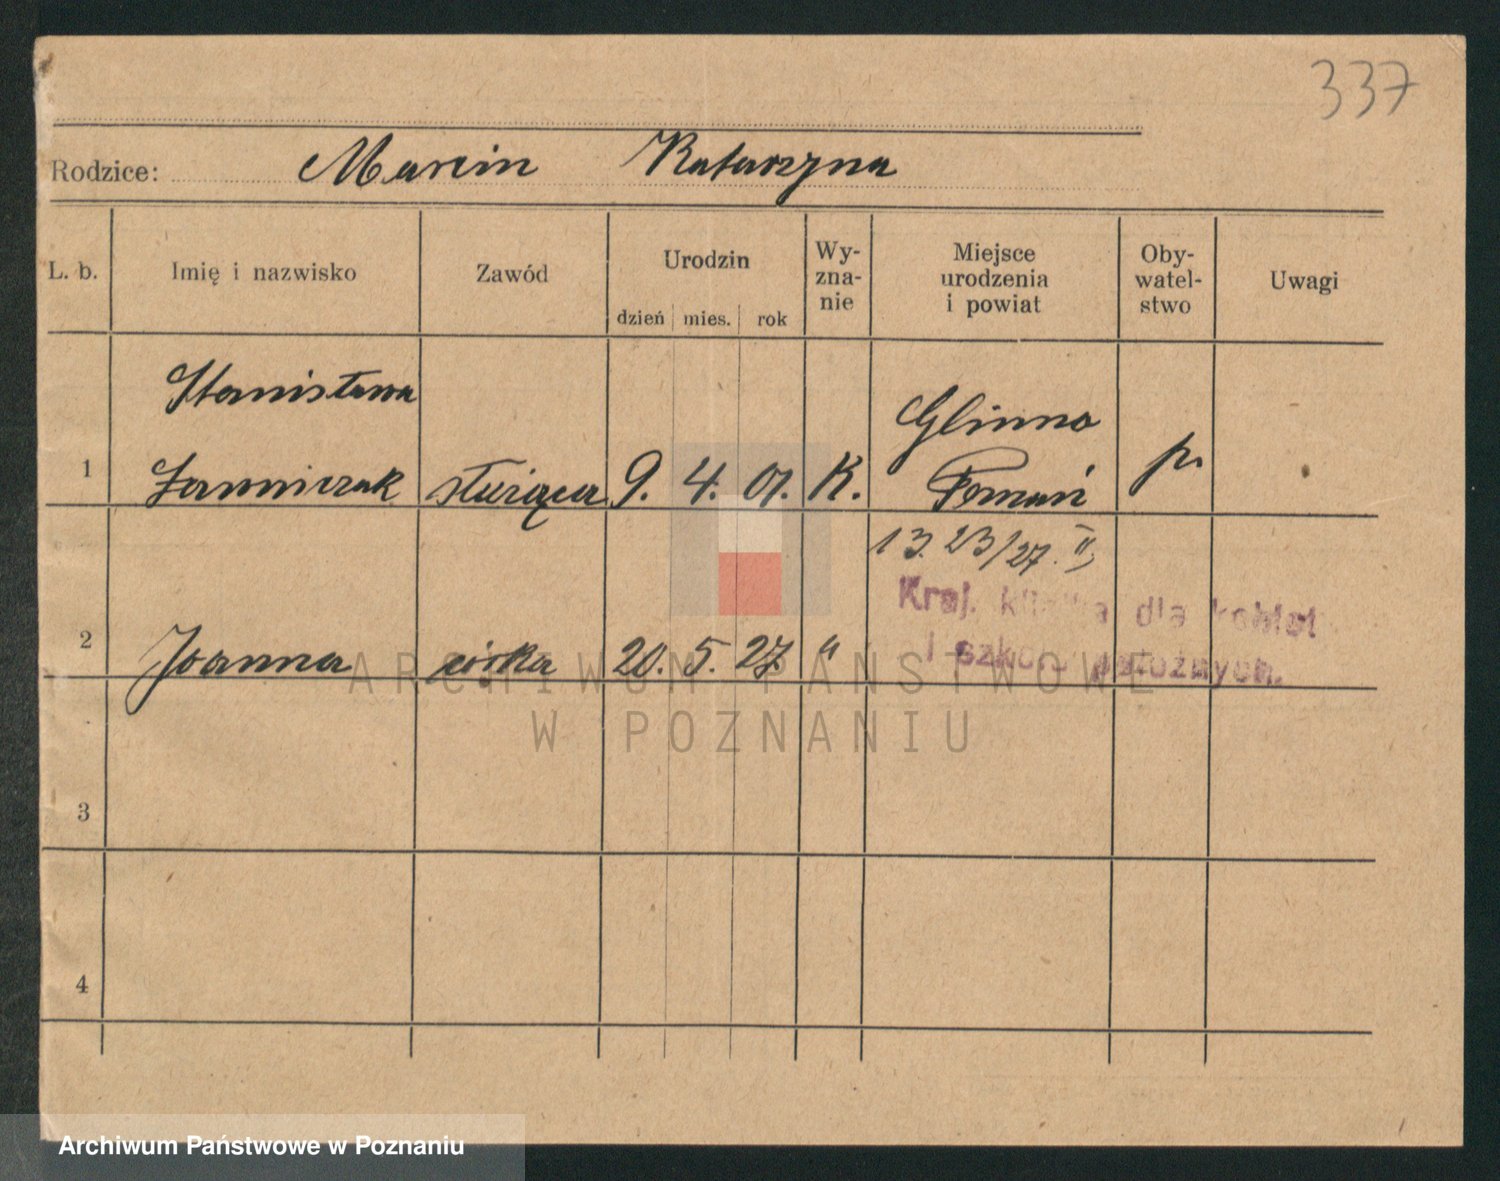 337
Rodzice: Marcin Katarzyna
L. b. Imię i nazwisko Zawód Urodzin Wy-zna-nie Miejsce urodzenia i powiat Oby-watel-stwo Uwagi
dzień mies. rok
Stanisława
Glinno
1 służąca 9. 4. 01. K. Poznań
13. 23/27. II
Kraj. klinika dla kobiet
i szkoła położnych.
2 Joanna córka 20. 5. 27. "
ARCHIWUM PAŃSTWOWE
W POZNANIU
3
4
Archiwum Państwowe w Poznaniu